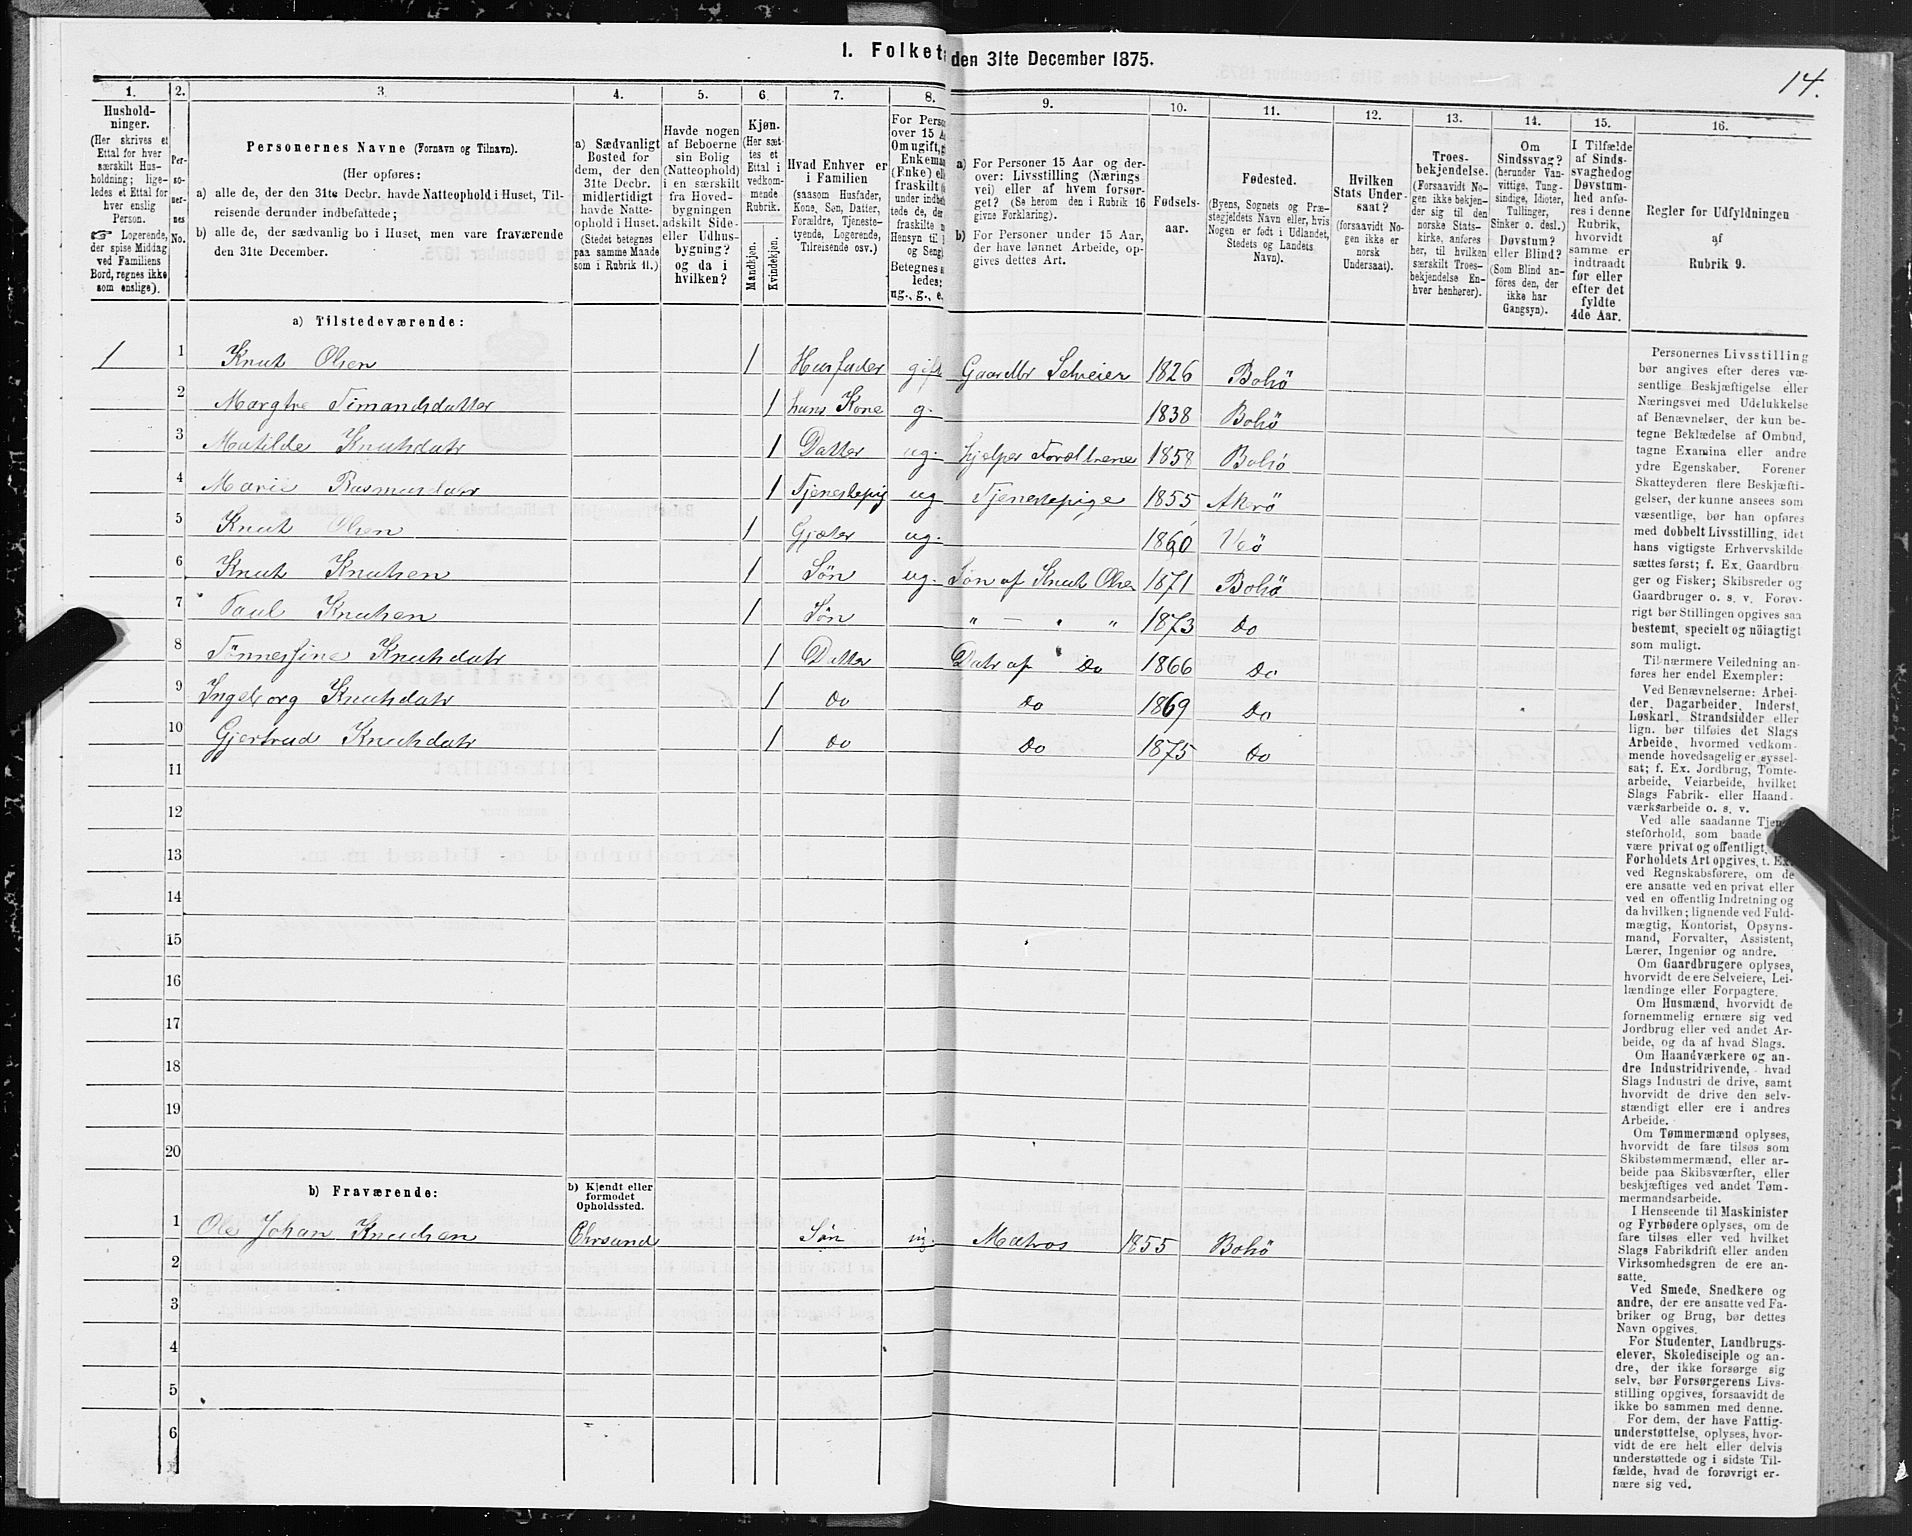 1. Folket: den 31te December 1875.
14.
1. 2. 3 4. 5. 6 7. 8. 9. 10. 11. 12. 13. 14. 15. 16.
Hushold-
ninger.
(Her skrives et
Ettal for hver
særskilt Hus-
holdning; lige-
ledes et Ettal for
hver enslig
Person.
☞ Logerende,
der spise Middag
ved Familiens
Bord, regnes ikke
som enslige).
Per-
so-
ner-
nes
No.
Personernes Navne (Fornavn og Tilnavn).
(Her opføres:
a) alle de, der den 31te Decbr. havde Natteophold i Huset, Til-
reisende derunder indbefattede;
b) alle de, der sædvanlig bo i Huset, men vare fraværende
den 31te December.
a) Sædvanligt
Bosted for
dem, der den
31te Decbr.
midlertidigt
havde Natte-
ophold i Huset.
(Stedet betegnes
paa samme Maade
som i Rubrik 11.)
Havde nogen
af Beboerne
sin Bolig
(Natteophold)
i en særskilt
fra Hoved-
bygningen
adskilt Side-
eller Udhus-
bygning?
og da i
hvilken?
Kjøn.
(Her sæt-
tes et
Ettal i
vedkom-
mende
Rubrik.
Mandkjøn.
Kvindekjøn.
Hvad Enhver er
i Familien
(saasom Husfader,
Kone, Søn, Datter,
Foraldre, Tjeneste-
tyende, Logerende,
Tilreisende osv.)
For Perso
over 15 A
Om ugift, g
Enkema
(Enke) elle
fraskilt (
under indbe
tede de, der
fraskilte
Hensyn til
og Seng)
Betegnes s
ledes:
ug., g., e.
a) For Personer 15 Aar og der-
over: Livsstilling (Nærings
vei) eller af hvem forsør-
get? (Se herom den i Rubrik 16
givne Forklaring).
b) For Personer under 15 Aar,
der have lønnet Arbeide, op-
gives dettes Art.
Fødsels-
aar.
Fødested.
(Byens, Sognets og Præ-
stegjeldets Navn eller, hvis
Nogen er født i Udlandet,
Stedets og Landets
Navn).
Hvilken
Stats Under
saat?
(forsaavidt No-
gen ikke er
norsk
Undersaat).
Troes-
bekjendelse.
(Forsaavidt No-
gen ikke bekjen-
der sig til den
norske Stats-
kirke, anføres
her, til hvilken
særskilt Troes-
bekjendelse En-
hver henhører).
Om
Sindssvag?
(herunder Van-
vittige, Tung-
sindige, Idioter,
Tullinger,
Sinker o. desl.)
Døvstum?
eller Blind?
(Som Blind an-
føres den, der
ikke har
Gangsyn).
I Tilfælde
af Sinds-
svaghedog
Døvstum-
hed anfø-
res i denne
Rubrik,
hvorvidt
samme er
indtraadt
før eller
efter det
fyldte
4de Aar.
Regler for Udfyldningen
af
Rubrik 9.
a) Tilstedeværende:
1 1 Knut Olsen 1 Husfader gift Gaardbr Selveier 1826 Bohø
2 Margtre Simandsdatter 1 hans Kone g. 1838 Bohø
3 Matilde Knutsdatr 1 Datter ug. hjelper Forældrene 1858 Bohø
4 Marie Rasmusdatr 1 Tjenestepig ug Tjenestepige 1855 Akrø
5 Knut Olsen 1 Gjæter ug. 1860 Veø
6 Knut Knutsen 1 Søn ug. Søn af Knut Olse 1871 Bohø
7 Paul Knutsen 1 Søn " — " " 1873 Do
8 Tønnesfine Knutsdatr 1 Datter Datr af Do 1866 Do
9 Ingeborg Knutsdatr 1 Do Do 1869 Do
10 Gjertrud Knutsdatr 1 Do Do 1875 Do
11
12
13
14
15
16
17
18
19
20
b) Fraværende:
b) Kjendt eller
formodet
Opholdssted.
1 Ole Johan Knudsen Chrsund Søn ug. Matros 1855 Bohø
2
3
4
5
6
Personernes Livsstilling
bør angives efter deres væ-
sentlige Beskjæftigelse eller
Næringsvei med Udelukkelse
af Benævnelser, der kun be-
tegne Beklædelse af Ombud,
tagne Examina eller andre
ydre Egenskaber. Forener
Skatteyderen flere Beskjæfti-
gelser, der kunne ansees som
væsentlige, bør han opføres
med dobbelt Livsstilling, idet
hans vigtigste Erhvervskilde
sættes først; f. Ex. Gaardbru-
ger og Fisker; Skibsreder og
Gaardbruger o. s. v. Forøv-
rigt bør Stillingen opgives saa
bestemt, specielt og nöiagtigt
som muligt.
Til nærmere Veiledning an-
føres her endel Exempler:
Ved Benævnelserne: Arbei-
der, Dagarbeider, Inderst,
Løskarl, Strandsidder eller
lign. bør tilføies det Slags
Arbeide, hvormed vedkom-
mende hovedsagelig er syssel-
sat; f. Ex. Jordbrug, Tomte-
arbeide, Veiarbeide, hvilket
Slags Fabrik- eller Haand-
værksarbeide o. s. v.
Ved alle saadanne Tjene-
steforhold, som baade
være privat og offentligt,
Forholdets Art opgives, t. Ex.
ved Regnskabsførere, om de
ere ansatte ved en privat eller
ved en offentlig Indretning og
da hvilken; lignende ved Fuld-
mægtig, Kontorist, Opsyns-
mand, Forvalter, Assistent,
Lærer, Ingeniør og andre.
Om Gaardbrugere oplyses,
hvorvidt de ere Selveiere, Lei-
lændinge eller Forpagtere.
Om Husmænd, hvorvidt de
fornemmelig ernære sig ved
Jordbrug eller ved andet Ar-
beide, og da af hvad Slags.
Om Haandværkere og an-
dre Industridrivende, hvad
Slags Industri de drive, samt
hvorvidt de drive den selv-
stændigt eller ere i andres
Arbeide.
Om Tømmermænd oplyses,
hvorvidt de fare tilsøs som
Skibstømmermænd, eller ar-
beide paa Skibsværfter, eller
beskjæftiges ved andet Tøm-
mermandsarbeide.
I Henseende til Maskinister
og Fyrbødere oplyses, om de
fare tilsøs eller ved hvilket
Slags Fabrikdrift eller anden
Virksomhedsgren de ere an-
satte.
Ved Smede, Snedkere og
andre, der ere ansatte ved Fa-
briker og Brug, bør dettes
Navn opgives.
For Studenter, Landbrugs-
elever, Skoledisciple og an-
dre, der ikke forsørge sig
selv, bør Forsørgerens Livs-
stilling opgives, forsaavidt de
ikke bo sammen med denne.
For dem, der have Fattig-
understøttelse, oplyses, hvor-
vidt de ere helt eller delvis
understøttede og i sidste Til-
fælde, hvad de forøvrigt er-
nære sig ved.